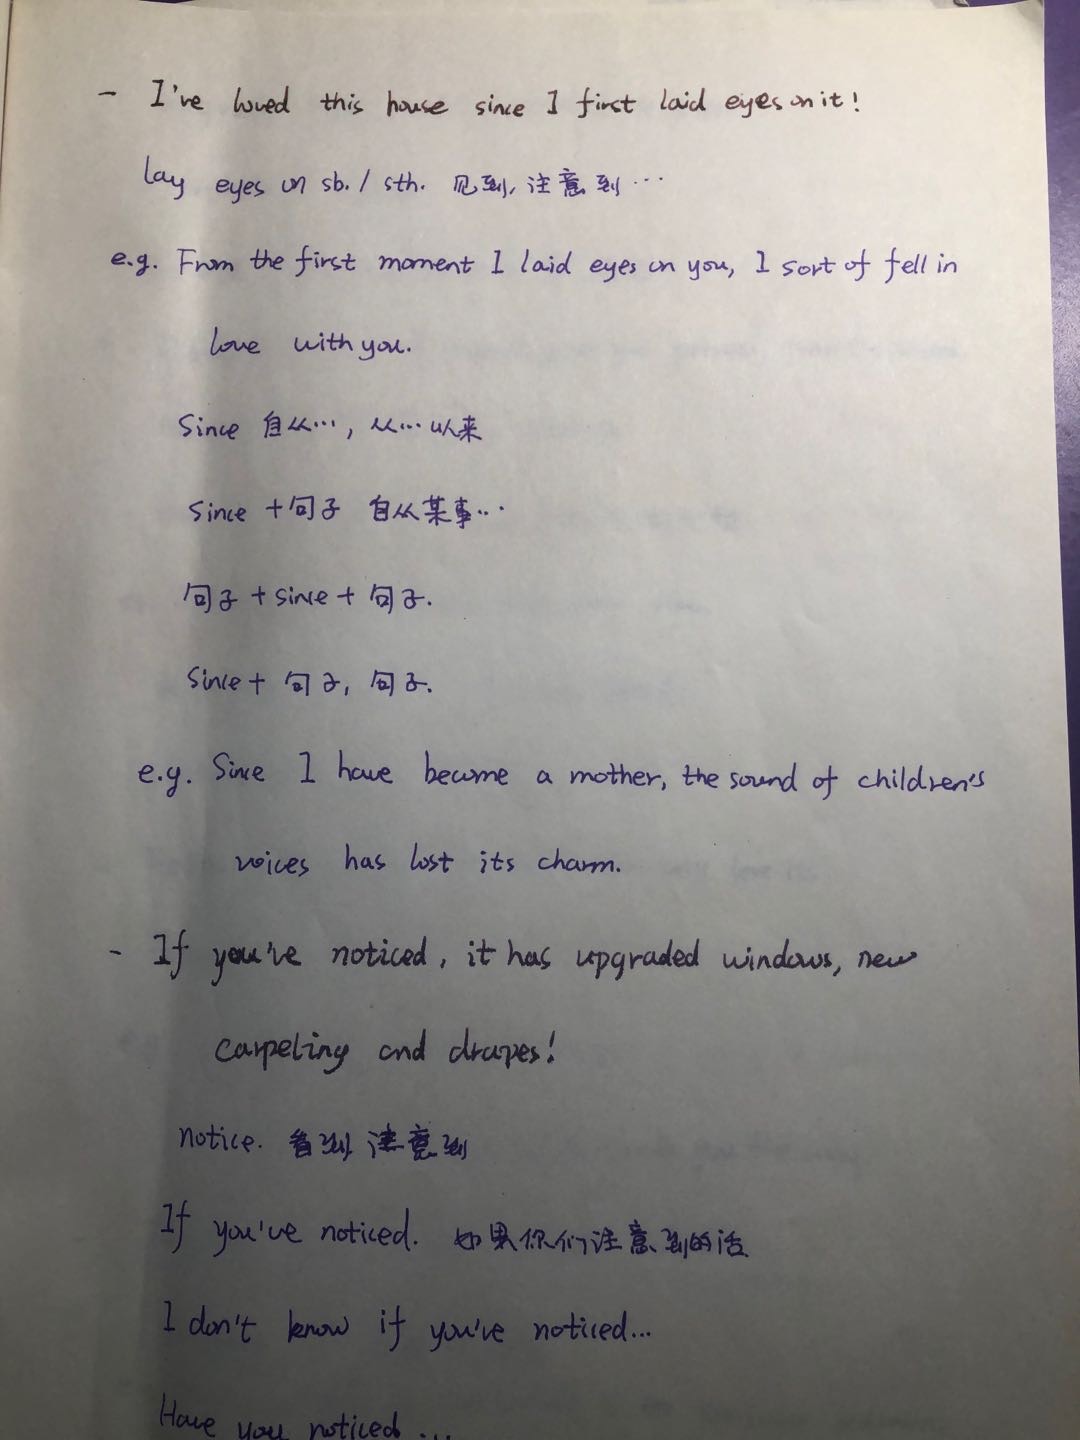 - I've loved this house since I first laid eyes on it!
lay eyes on sb. / sth. 见到, 注意到…
e.g. From the first moment I laid eyes on you, I sort of fell in
love with you.
Since 自从…, 从…以来
Since + 句子 自从某事…
句子 + since + 句子.
Since + 句子, 句子.
e.g. Since I have become a mother, the sound of children's
voices has lost its charm.
- If you've noticed, it has upgraded windows, new
carpeting and drapes!
notice. 看到, 注意到
If you've noticed. 如果你们注意到的话
I don't know if you've noticed...
Have you noticed ...